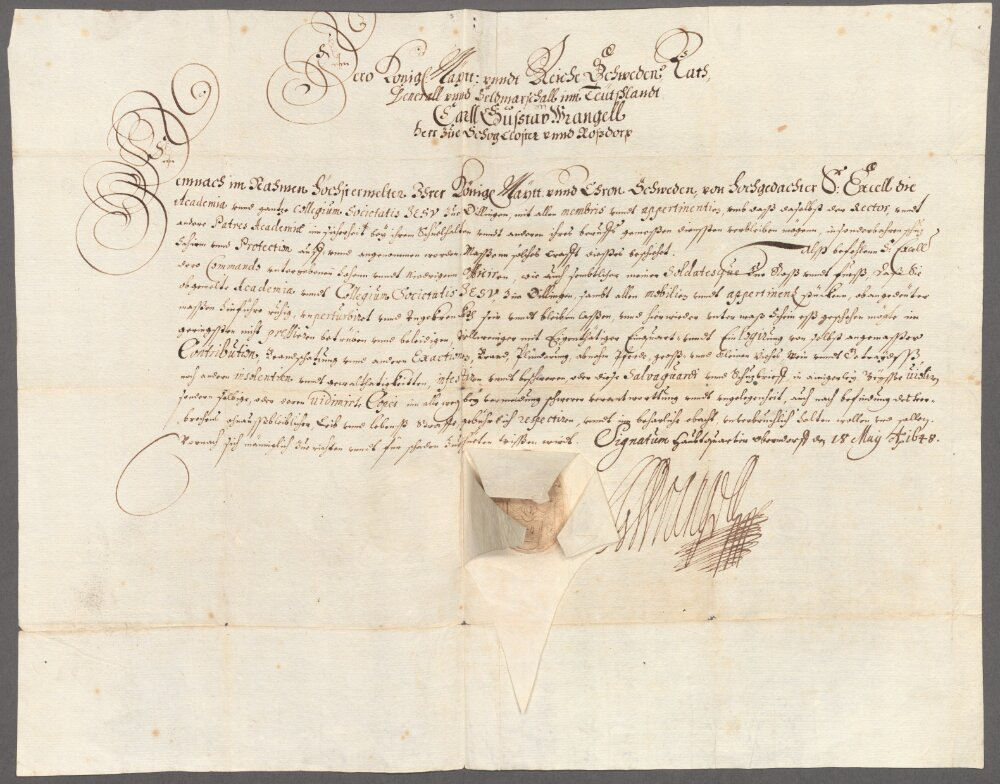 Dero Königl: Maytt: vnndt Reiche Schweden Rath,
General vnnd Veldmarschall inn Teutschlandt
Carll Gusstav Wrangell
Herr Zue Schog Closter vnnd Rossdorf
Demnach im Nahmen Höchstermelter Ihrer Königl: Maytt: vnnd Chron Schweden, von hochgedachter S: Excell: die
Academia vnnd gantze Collegium Societatis JESV Zue Dillingen, mit allen membris vnndt appertinentien, vmb dass daselbst der Rector, vnndt
andere Patres Academiæ in sicherheit bey ihrem Schulhalten vnndt anderen ihres beruffs genossen diensten verbleiben mögen, in sonderbahren
Schirm vnnd Protection auff vnnd angenommen worden, Massen solches Crafft dieses beschehet. Alss befehlen S: Excell:
dero Commando vnterworbenen hohen vnndt Niedrigen Officirern, wie auch sembtlicher Soldatesque Zue Ross vnndt Fuess, dass sie
obgemelte Academia vnndt Collegium Societatis JESV Zue Dillingen, sambt allen mobilien vnndt appertinent stücken, obangedeuter
massen ruhig, vnperturbiret vnnd vngekrencket sein vnndt bleiben lassen, vnnd hierwieder vnter wass schein ess geschehen möchte im
geringsten nicht pressiren betrüben vnnd beleidigen, vielweniger mit Eigenthätiger Einquart: vnndt Einlogirung von selbst angemasster
Contribution, Brandschatzung vnnd anderen Exactionen, Brand, Plünderung, abnahm Pferde, gross vnnd kleinen Viehs, Wein vnndt Getraydess
noch anderen insolentien vnndt gewaltthätigkeiten, infestiren vnndt beschweren oder diese Salvaguardi vnnd Schutzbrieff in einigerley
sondern selbige, oder deren vidimirte Copei im alle wege bey vermeidung schwerer verantworttung vnndt vngelegenheit, auch nach befindung desver-
brechens ohnaussbleiblicher Leib vnnd lebenss Straffe, gebührlich respectiren, vnndt in beharliche obacht, vnverbrüchlich halten wollen vnnd sollen.
Wornach sich männiglich Zu richten vnndt für schaden Zu hüeten wissen wird. Signatum Haubtquartier Oberndorff den 18 May Ao 1648.
CGWrangel